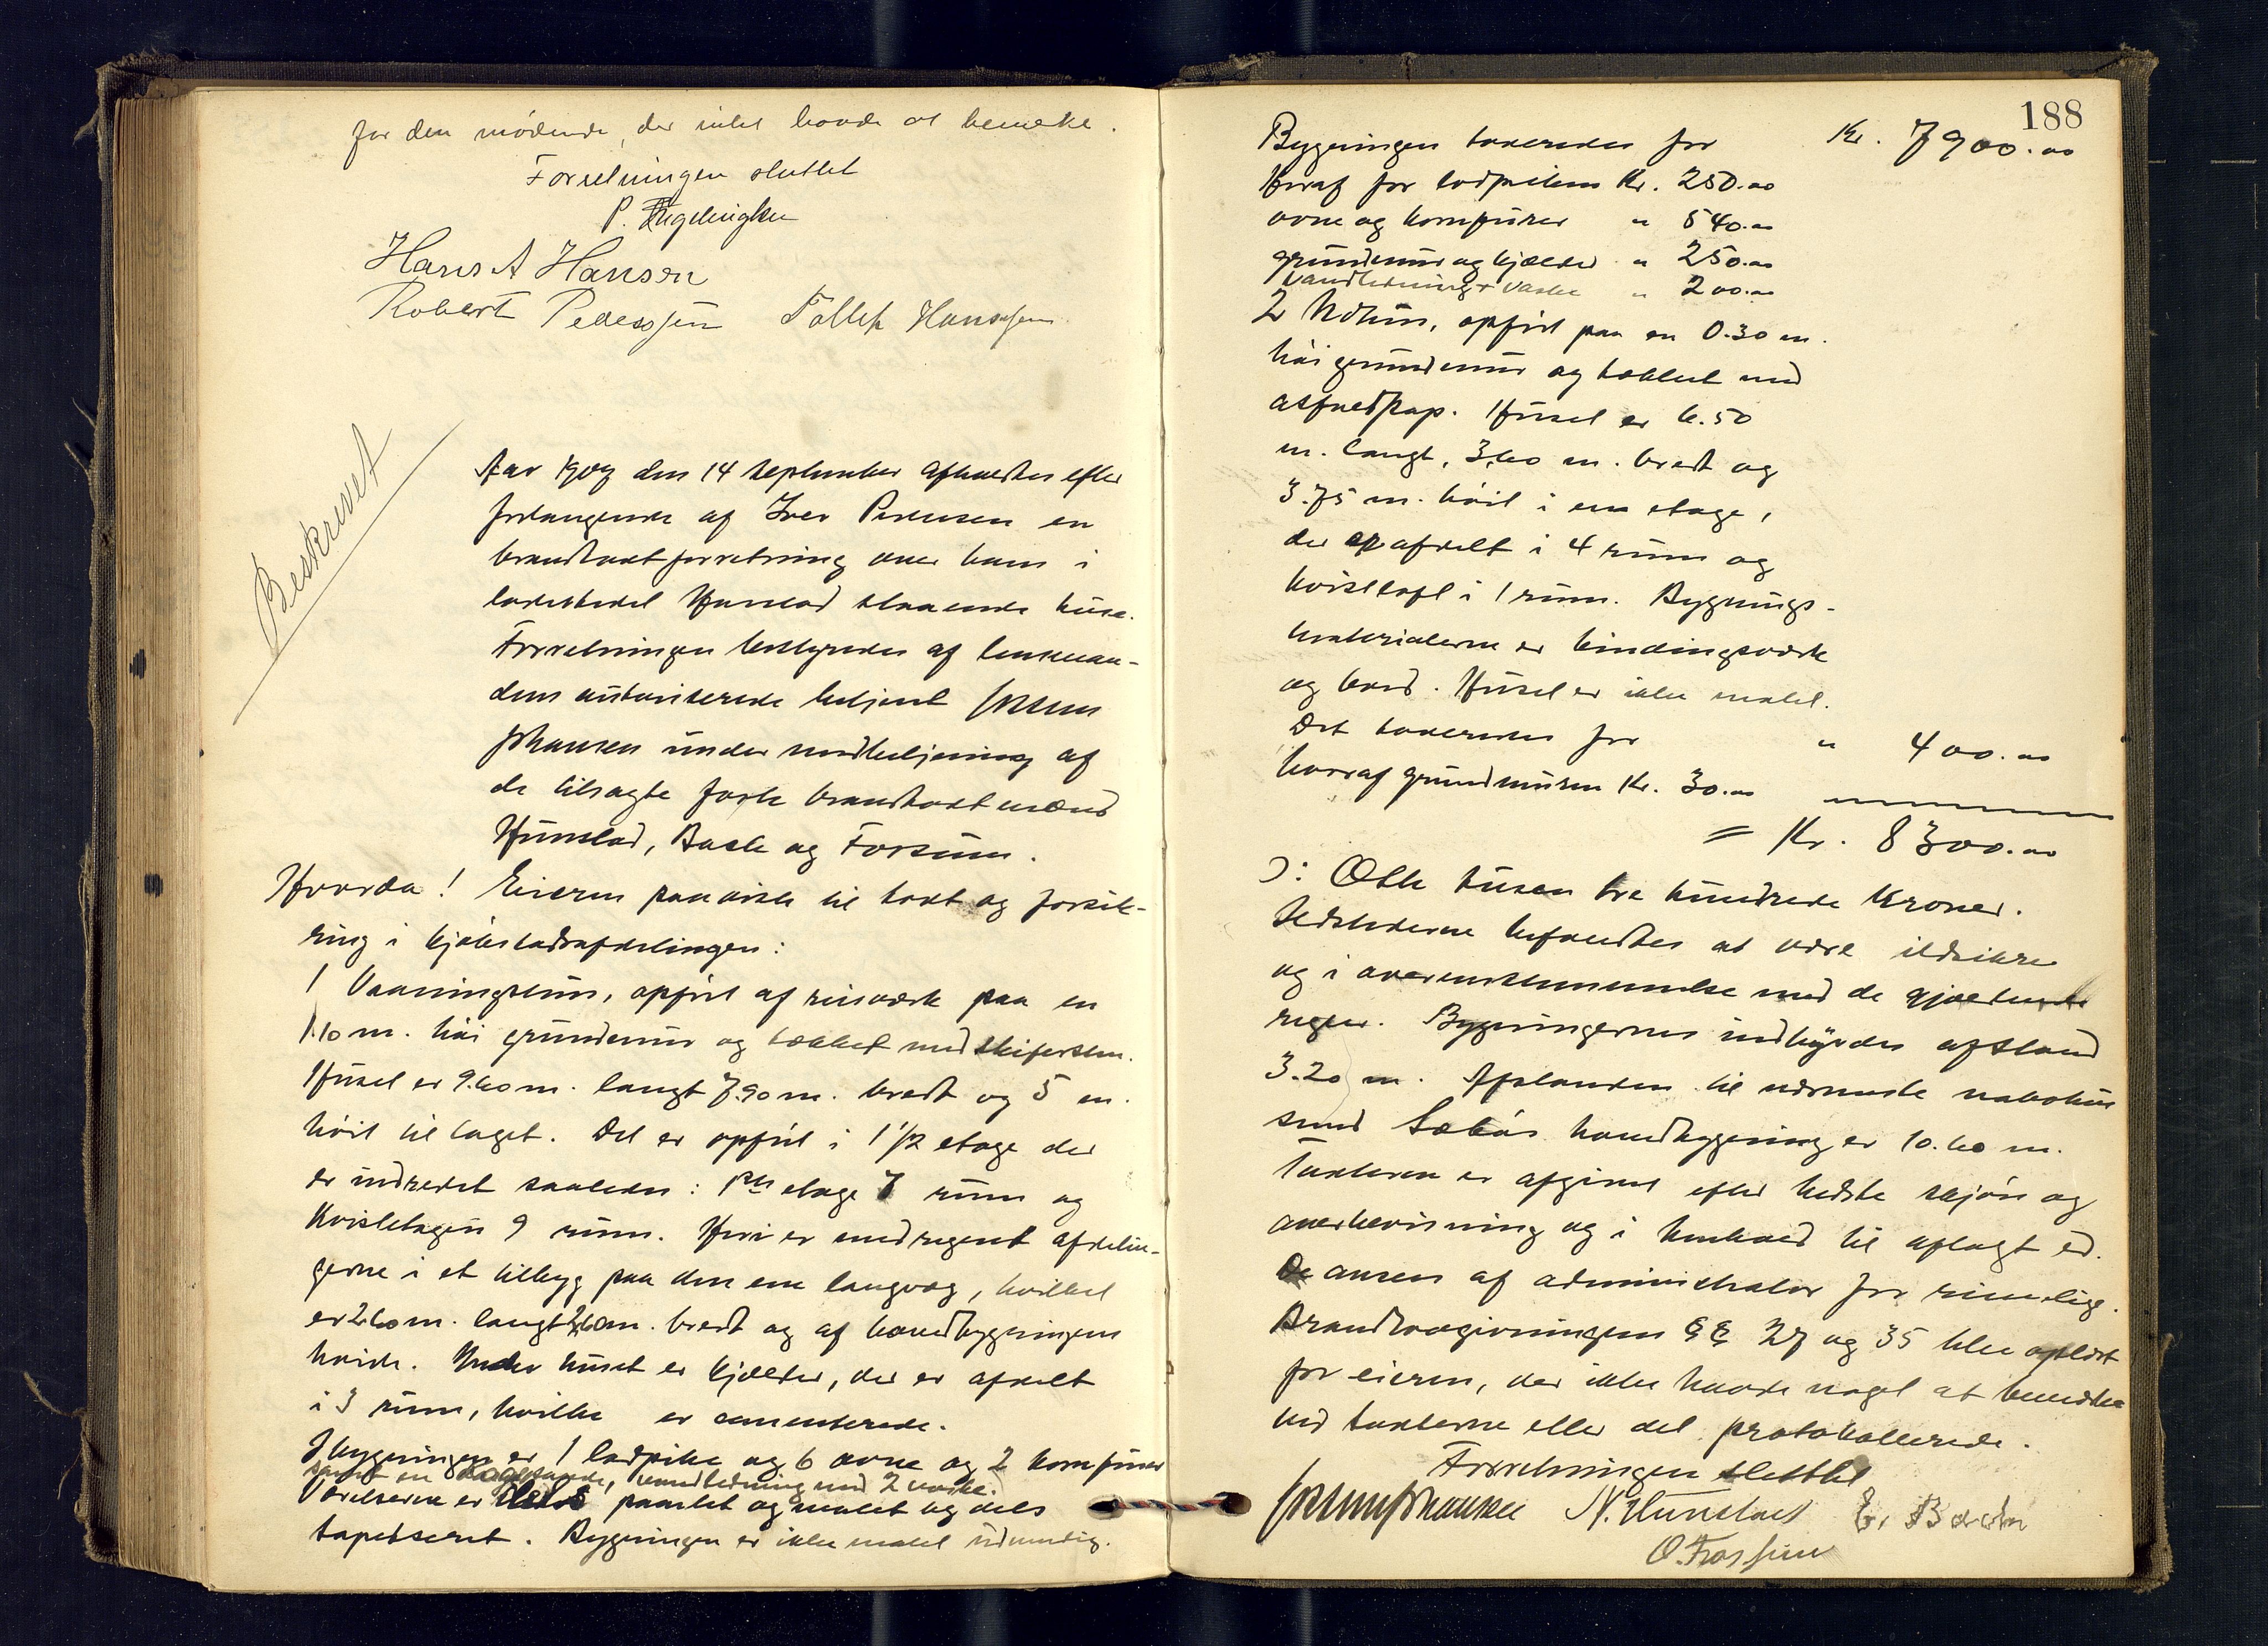 for den mødende, der intet havde at bemerke.
Forretningen sluttet
P.
Hans A Hansen
Robert Pederssen Tollef Hanssen
Beskrevet
Aar 1907 den 14 september afholdtes efter
forlangende af Iver Pedersen en
brandtaxtforretning over hans i
ladestedet staaende huse.
Forretningen bestyredes af lensman-
dens autoriserede betjent
Johansen under medbetjening af
de tilsagte faste brandtaxtmænd
Hunstad, Basle og Forsum.
Hvorda! Eieren paaviste til taxt og forsik-
ring i kjøbstadsafdelingen:
1 Vaaningshus, opført af reisværk paa en
1.10 m. høi grundmur og tækket med skifersten.
Huset er 9.60 m. langt 7.90 m. bredt og 5 m.
høit til taget. Det er opført i 1 1/2 etage der
er indredet saaledes: 1ste etage 7 rum og
Kvistetagen 9 rum. Heri er medregnet afdelin-
gerne i et tilbyg paa den ene langvæg, hvilket
er 2.60 m. langt 2.60 m. bredt og af hovedbygningens
høide. Under huset er kjælder, der er afdelt
i 3 rum, hvilke er cementerede.
I bygningen er 1 ladpibe og 6 ovne og 2 komfurer
samt en , vandledning med 2 vaske.
Værelserne er dels panelet og malet og dels
tapetseret. Bygningen er ikke malet udvendig.
188
Bygningen taxeredes for Kr. 7900.00
Heraf for ladpiben Kr. 250.00
ovne og komfurer " 540.00
grundmur og kjælder " 250.00
Vandledning + vaske " 200.00
2 Udhus, opført paa en 0.30 m.
høi grundmur og tækket med
asfaltpap. Huset er 6.50
m. langt, 3.60 m. bredt og
3.75 m. høit i en etage,
der er afdelt i 4 rum og
kvistloft i 1 rum. Bygnings-
materialerne er bindingsværk
og bord. Huset er ikke malet.
Det taxeredes for " 400.00
hvoraf grundmuren Kr. 30.00
= Kr. 8300.00
ɔ: Otte tusen tre hundrede Kroner.
Ildstederne befandtes at være ildsikre
og i overensstemmelse med de gjældende
regler. Bygningernes indbyrdes afstand
3.20 m. Afstanden til nærmeste nabohus
hovedbygning er 10.60 m.
Taxterne er afgivne efter bedste skjøn og
overbevisning og i henhold til aflagt ed.
De ansees af administrator for rimelige.
Brandlovgivningens §§ 27 og 35 blev oplæst
for eieren, der ikke havde noget at bemerke
ved taxterne eller det protokollerede.
Forretningen sluttet
Johansen N. Hunstad E.
O. Forssum